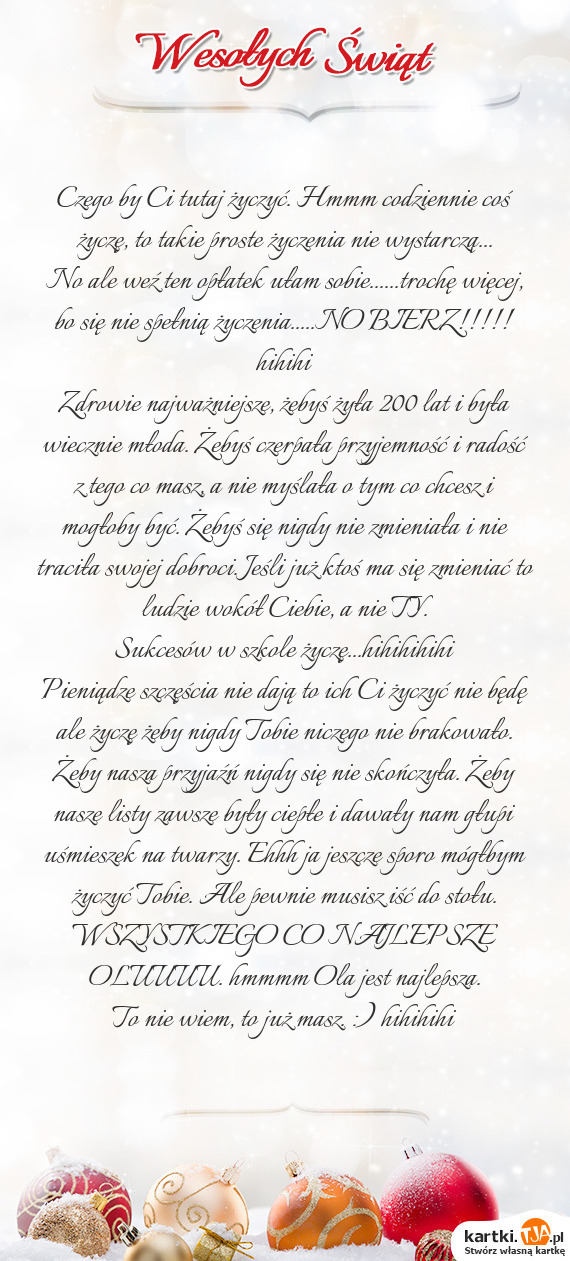 Wesołych Świąt
Czego by Ci tutaj życzyć. Hmmm codziennie coś
życzę, to takie proste życzenia nie wystarczą...
No ale weź ten opłatek ułam sobie......trochę więcej,
bo się nie spełnią życzenia.....NO BIERZ!!!!!
hihihi
Zdrowie najważniejsze, żebyś żyła 200 lat i była
wiecznie młoda. Żebyś czerpała przyjemność i radość
z tego co masz, a nie myślała o tym co chcesz i
mogłoby być. Żebyś się nigdy nie zmieniała i nie
traciła swojej dobroci. Jeśli już ktoś ma się zmieniać to
ludzie wokół Ciebie, a nie TY.
Sukcesów w szkole życzę...hihihihihi
Pieniądze szczęścia nie dają to ich Ci życzyć nie będę
ale życzę żęby nigdy Tobie niczego nie brakowało.
Żeby nasza przyjaźń nigdy się nie skończyła. Żeby
nasze listy zawsze były ciepłe i dawały nam głupi
uśmieszek na twarzy. Ehhh ja jeszcze sporo mógłbym
życzyć Tobie. Ale pewnie musisz iść do stołu.
WSZYSTKIEGO CO NAJLEPSZE
OLUUUU. hmmmm Ola jest najlepsza.
To nie wiem, to już masz. :) hihihihi
kartki.TJA.pl
Stwórz własną kartkę